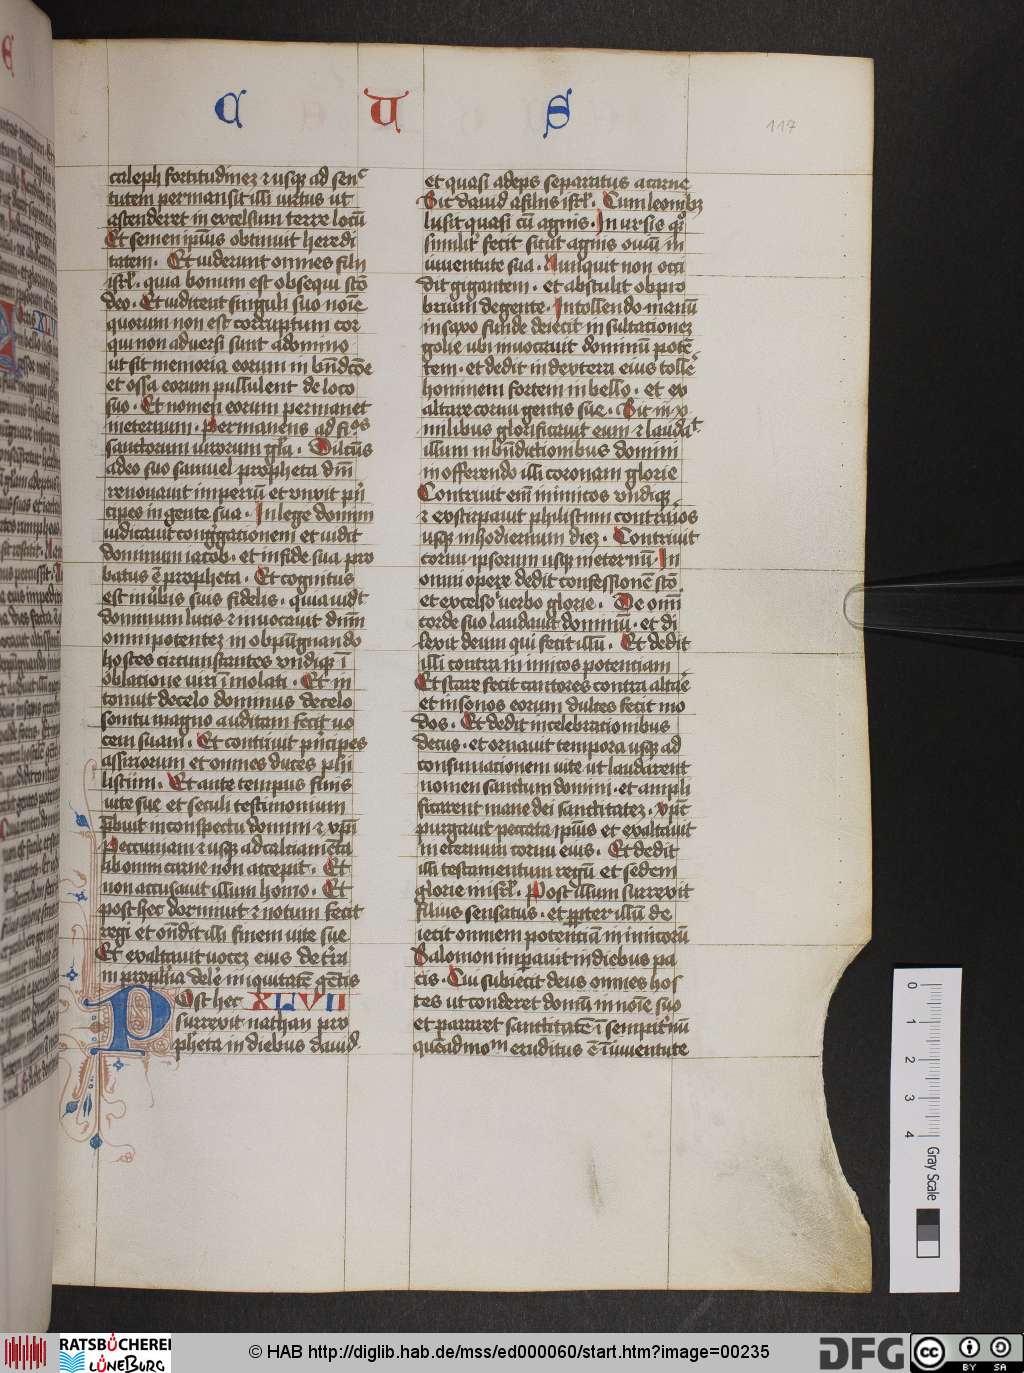 C U S
117
caleph fortitudinez ⁊ usqꝫ ad senc
tutem permansit illi virtus ut
ascenderet in excelsum terre locū
Et semen ip̄ius obtinuit heredi
tatem . Et viderunt omnes filii
isrl̓ . quia bonum est obsequi sc̄o
deo . Et iudicent singuli suo noīe
quorum non est corruptum cor
qui non adversi sunt a domino
ut sit memoria eorum in bn̄dcōe
et ossa eorum pullulent de loco
suo . Et nomen eorum permanet
in eternum . permanens ad fios
sanctorum virorum gl̓a . Dilcūs
a deo suo samuel propheta dn̄i
renovavit imperiū et unxit pn̓
cipes in gente sua . In lege domini
iudicavit congꝑgationem et vidit
dominum iacob . et in fide sua pro
batus ē propheta . Et cognitus
est in v̓bis suis fidelis . quia vidt
dominum lucis ⁊ invocavit dn̄m
omnipotentez in obpūgnando
hostes circunstantes undiqꝫ ī
oblatione viri īmolati . Et in
tonuit de celo dominus de celo
sonitu magno auditam fecit vo
cem suam . Et contrivit pn̓cipes
assiriorum et omnes duces phi
listiim . Et ante tempus finis
vite sue et seculi testimonium
p̄buit in conspectu domini ⁊ xp̄i
Peccuniam ⁊ usqꝫ ad calciamēta
ab omni carne non accepit . Et
non accusavit illum homo . Et
post hec dormivit ⁊ notum fecit
regi et on̄dit illi finem vite sue
Et exaltavit vocez eius de tr̓ra
in proph̓ia dele̓ iniquitatē gētis
Post hec XLVII
surrexit nathan pro
pheta in diebus david
et quasi adeps separatus a carne
Sic david a filiis isrl̓ . Cum leonibꝫ
lusit quasi cū agnis . In ursis qꝫ
similit̓ fecit sicut agnis oviū in
iuventute sua . Nunquit non occi
dit gigantem . et abstulit obpro
brium de gente . In tollendo manū
in saxo funde deiecit insultationez
golie ubi invocavit dominū potē
tem . et dedit in dextera eius tollē
hominem fortem in bello . et ex
altare cornu gentis sue . Sic in x
milibus glorificavit eum ⁊ laudat
illum in bn̄dictionibus domini
in offerendo illi coronam glorie
Contrivit eīn inimicos undiqꝫ
⁊ exstirpavit philistiim contrarios
usqꝫ in hodiernum diez . Contrivit
cornu ipsorum usqꝫ in eternū . In
omni opere dedit confessionē sc̄o
et excelso verbo glorie . De omī
corde suo laudavit dominū . et di
lexit deum qui fecit illū . Et dedit
illi contra inimicos potenciam
Et stare fecit cantores contra altāe
et in sonos eorum dulces fecit mo
dos . Et dedit in celebrationibus
decus . et ornavit tempora usqꝫ ad
consumationem vite ut laudarent
nomen sanctum domini . et ampli
ficarent mane dei sanctitatez . xp̄c
purgavit peccata ip̄ius et exaltavit
in eternum cornu eius . Et dedit
illi testamentum regū et sedem
glorie in isrl̓ . Post illum surrexit
filius sensatus . et ꝓpter illū de
iecit omnem potenciā inimicorū
Salomon imꝑavit in diebus pa
cis . Cui subiecit deus omnes hos
tes ut conderet domū in noīe suo
et pararet sanctitatē ī sempit̓nū
quēadmom eruditus ē ī iuventute
0 1 2 3 4
Gray Scale
RATSBÜCHEREI
LÜNEBURG
© HAB http://diglib.hab.de/mss/ed000060/start.htm?image=00235
DFG
CC BY SA